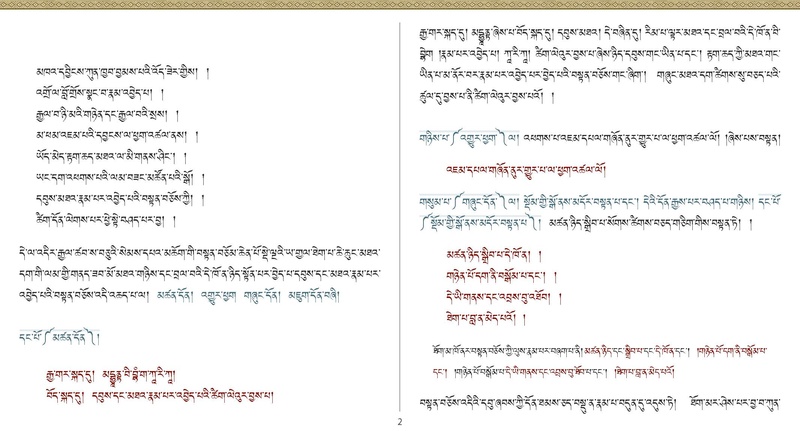 མཁའ་དབྱིངས་ཀུན་ཁྱབ་བྱམས་པའི་འོད་ཟེར་གྱིས། །
འགྲོ་ལ་བློ་གྲོས་སྣང་བ་རྣམ་འབྱེད་པ། །
རྒྱལ་བ་ཉི་མའི་གཉེན་དང་རྒྱལ་བའི་སྲས། །
མ་ཕམ་འཇམ་པའི་དབྱངས་ལ་ཕྱག་འཚལ་ནས། །
ཡོད་མེད་རྟག་ཆད་མཐའ་ལ་མི་གནས་ཤིང་། །
ཡང་དག་འཕགས་པའི་ལམ་བཟང་མཚོན་པའི་སྒོ། །
དབུས་མཐའ་རྣམ་པར་འབྱེད་པའི་བསྟན་བཅོས་ཀྱི། །
ཚིག་དོན་ལེགས་པར་ཕྱེ་སྟེ་བཤད་པར་བྱ། །
དེ་ལ་འདིར་རྒྱལ་ཚབ་ས་བཅུའི་སེམས་དཔའ་མཆོག་གི་བསྟན་བཅོམ་ཆེན་པོ་སྡེ་ལྔའི་ཡ་གྱལ་ཐེག་པ་ཆེ་ཆུང་མཐའ་
དག་གི་ལམ་གྱི་གནད་ཟབ་མོ་མཐའ་གཉིས་དང་བྲལ་བའི་དེ་ཁོ་ན་ཉིད་སྟོན་པར་བྱེད་པ་དབུས་དང་མཐའ་རྣམ་པར་
འབྱེད་པའི་བསྟན་བཅོས་འདི་འཆད་པ་ལ། མཚན་དོན། འགྱུར་ཕྱག གཞུང་དོན། མཇུག་དོན་བཞི།
དང་པོ་༼མཚན་དོན་༽།
རྒྱ་གར་སྐད་དུ།
བོད་སྐད་དུ། དབུས་དང་མཐའ་རྣམ་པར་འབྱེད་པའི་ཚིག་ལེའུར་བྱས་པ།
2
རྒྱ་གར་སྐད་དུ། ཞེས་པ་བོད་སྐད་དུ། དབུས་མཐའ། དེ་བཞིན་དུ། རིམ་པ་ལྟར་མཐའ་དང་བྲལ་བའི་དེ་ཁོ་ན་བི་
བྷཱག །རྣམ་པར་འབྱེད་པ། ཀཱ་རི་ཀཱ། ཚིག་ལེའུར་བྱས་པ་ཞེས་ཉིད་དབུས་གང་ཡིན་པ་དང་། རྟག་ཆད་ཀྱི་མཐའ་གང་
ཡིན་པ་མ་ནོར་བར་རྣམ་པར་འབྱེད་པར་བྱེད་པའི་བསྟན་བཅོས་གང་ཞིག །གཞུང་མཐའ་དག་ཚིགས་སུ་བཅད་པའི་
ཚུལ་དུ་བྱས་པ་ནི་ཚིག་ལེའུར་བྱས་པའོ། །
གཉིས་པ་༼འགྱུར་ཕྱག་༽ལ། འཕགས་པ་འཇམ་དཔལ་གཞོན་ནུར་གྱུར་པ་ལ་ཕྱག་འཚལ་ལོ། །ཞེས་པས་བསྟན།
འཇམ་དཔལ་གཞོན་ནུར་གྱུར་པ་ལ་ཕྱག་འཚལ་ལོ།
གསུམ་པ་༼གཞུང་དོན་༽ལ། སྡོམ་གྱི་སྒོ་ནས་མདོར་བསྟན་པ་དང་། དེའི་དོན་རྒྱས་པར་བཤད་པ་གཉིས། དང་པོ་
༼སྡོམ་གྱི་སྒོ་ནས་མདོར་བསྟན་པ་༽། མཚན་ཉིད་སྒྲིབ་པ་སོགས་ཚིགས་བཅད་གཅིག་གིས་བསྟན་ཏེ། །
མཚན་ཉིད་སྒྲིབ་པ་དེ་ཁོ་ན། །
གཉེན་པོ་དག་ནི་བསྒོམ་པ་དང་། །
དེ་ཡི་གནས་དང་འབྲས་བུ་འཐོབ། །
ཐེག་པ་བླ་ན་མེད་པའོ། །
ཐོག་མ་ཁོ་ནར་བསྟན་བཅོས་ཀྱི་ལུས་རྣམ་པར་བཞག་པ་ནི། མཚན་ཉིད་དང་སྒྲིབ་པ་དང་དེ་ཁོན་དང་། །གཉེན་པོ་དག་ནི་བསྒོམ་པ་
དང་། །གཉེན་པོ་བསྒོམ་པ་དེ་ཡི་གནས་དང་འབྲས་བུ་ཐོབ་པ་དང་། །ཐེག་པ་བླ་ན་མེད་པའོ།
བསྟན་བཅོས་འདིའི་དབུ་ཞབས་ཀྱི་དོན་ཐམས་ཅད་བསྡུ་ན་རྣམ་པ་བདུན་དུ་འདུས་ཏེ། ཐོག་མར་ཤེས་པར་བྱ་བ་ཀུན་